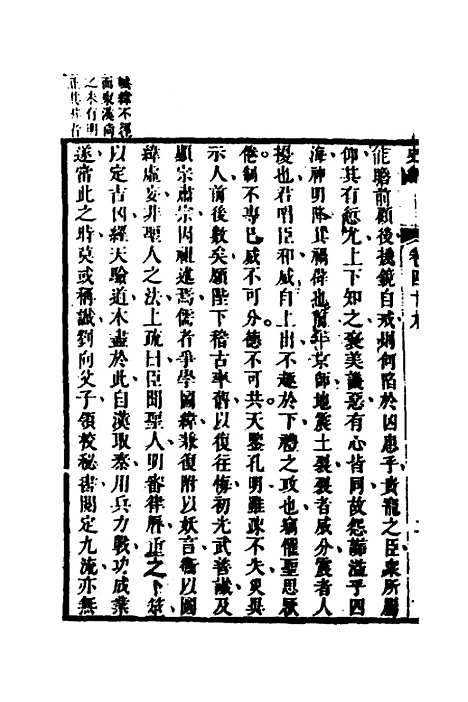 能瞻前顧後援鏡自戒則何陷於凶患乎貴寵之臣眾所屬
仰其有愆尤上下知之褒美譏惡有心皆同故怨讟溢乎四
海神明降其禍辟也頃年京師地震土裂裂者威分震者人
擾也君唱臣和威自上出不趣於下禮之政也竊懼聖思厭
倦制不專己威不可分德不可共天鑒孔明雖疎不失災異
示人前後數矣願陛下稽古率舊以復往悔初光武善讖及
顯宗肅宗因祖述焉儒者爭學圖緯兼復附以妖言衡以圖
緯虛妄非聖人之法上疏曰臣聞聖人明審律曆重之卜筮
以定吉凶經天驗道本盡於此自漢取秦用兵力戰功成業
遂當此之時莫或稱讖劉向父子領校秘書閱定九流亦無
讖緯不經
而東漢尚
之未有明
正其非者